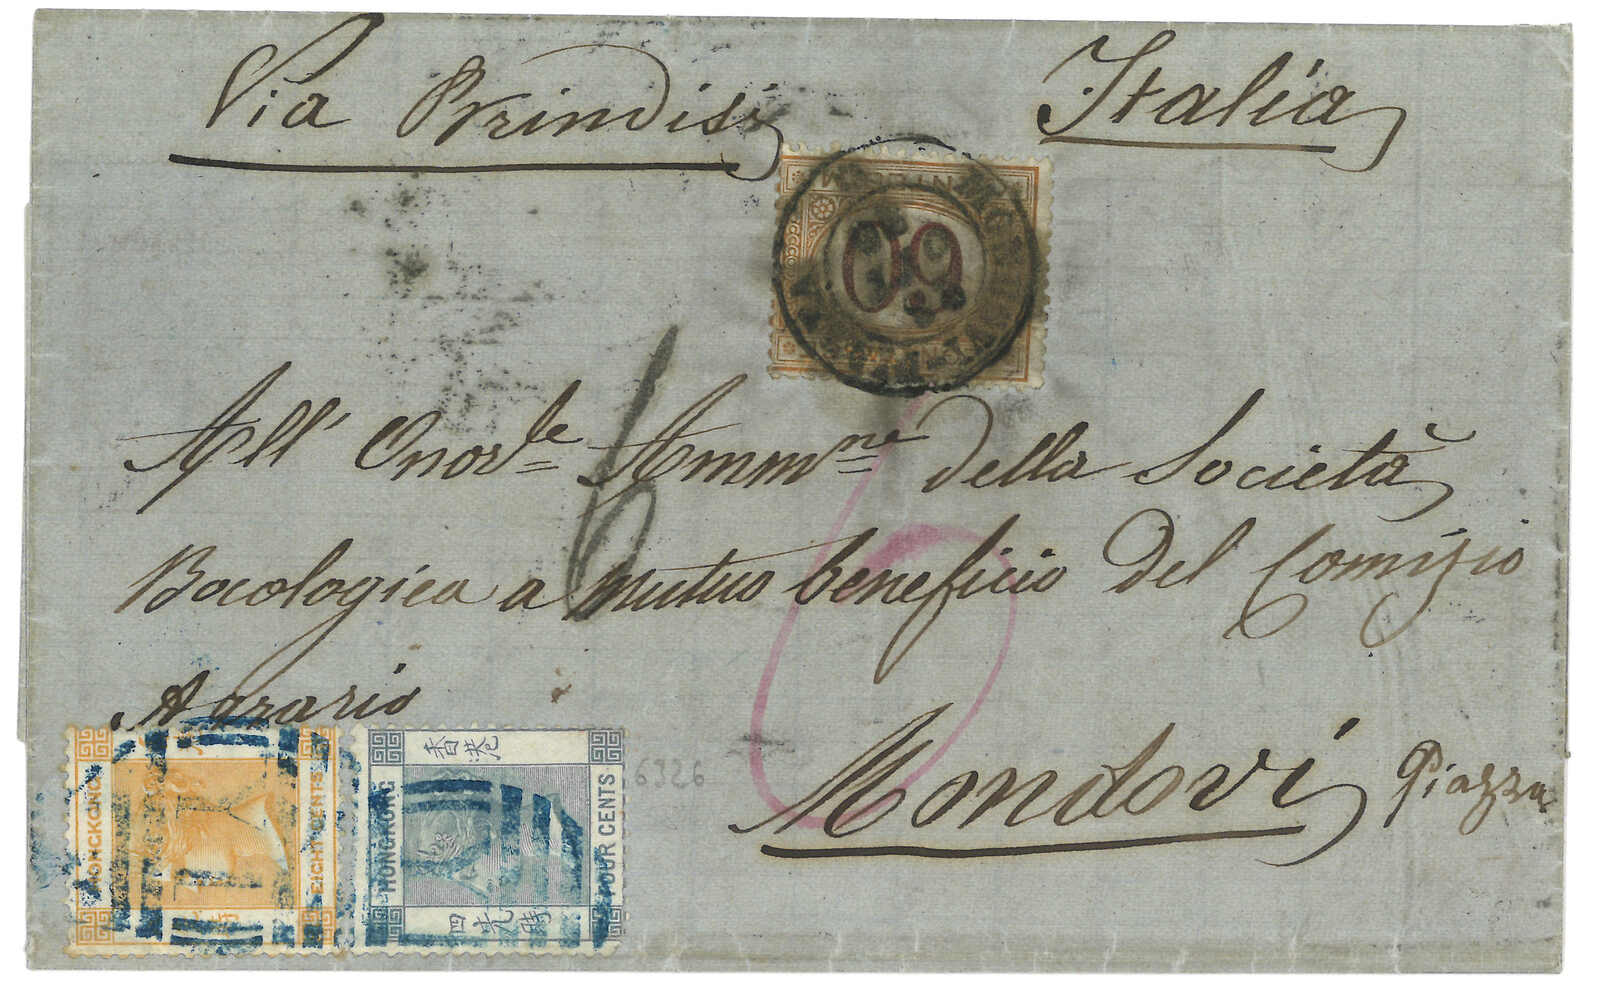 Via Brindisi
Italia
60
6
All' Onor.le Amm.ne della Società
Bacologica a mutuo beneficio del Comizio
Agrario
6
6326
Mondovi Piazza
HONGKONG
EIGHT CENTS
香港
HONGKONG
FOUR CENTS
四先時